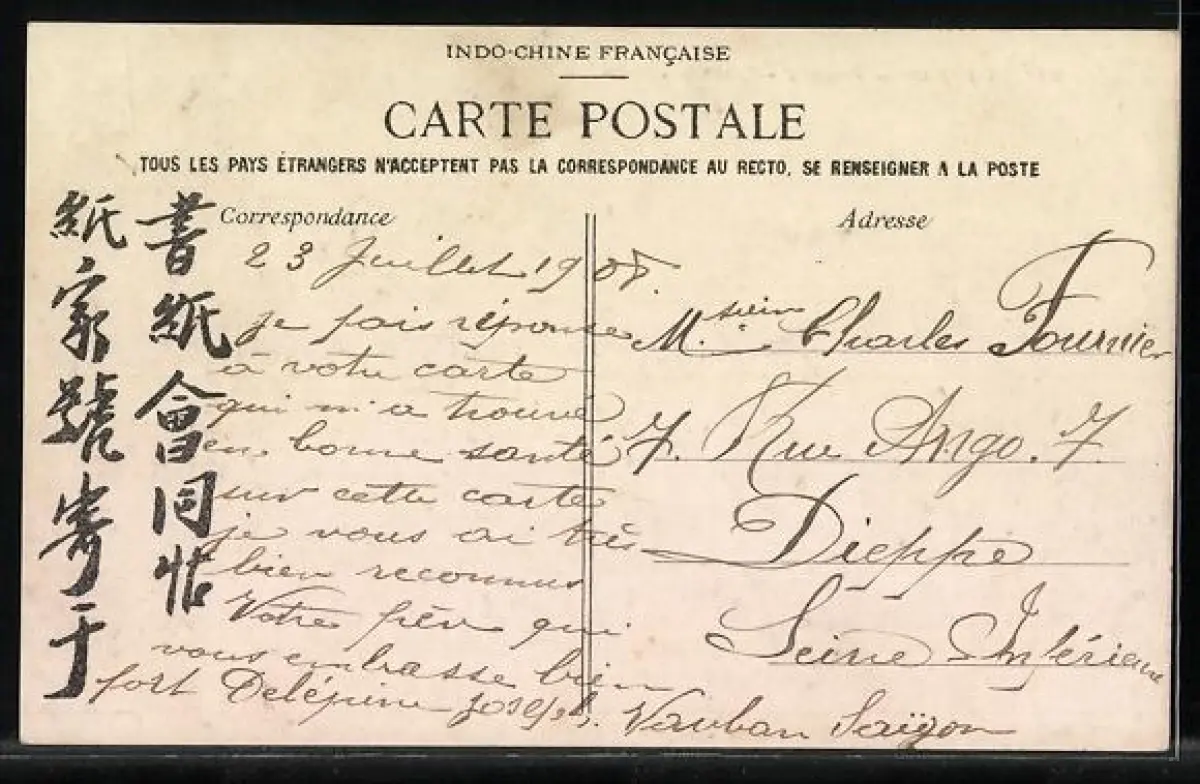 INDO-CHINE FRANÇAISE
CARTE POSTALE
TOUS LES PAYS ÉTRANGERS N'ACCEPTENT PAS LA CORRESPONDANCE AU RECTO, SE RENSEIGNER A LA POSTE
Correspondance
23 Juillet 1908.
je fais réponse
à votre carte
qui m'a trouvé
en bonne santé
sur cette carte
je vous ai très
bien reconnus
Votre frère qui
vous embrasse bien
fort Delépine Joseph. Vauban Saïgon
Adresse
Charles Fournier
7. Rue Ango. 7.
Dieppe
Seine Inférieure
書紙會同
紙家號寄于